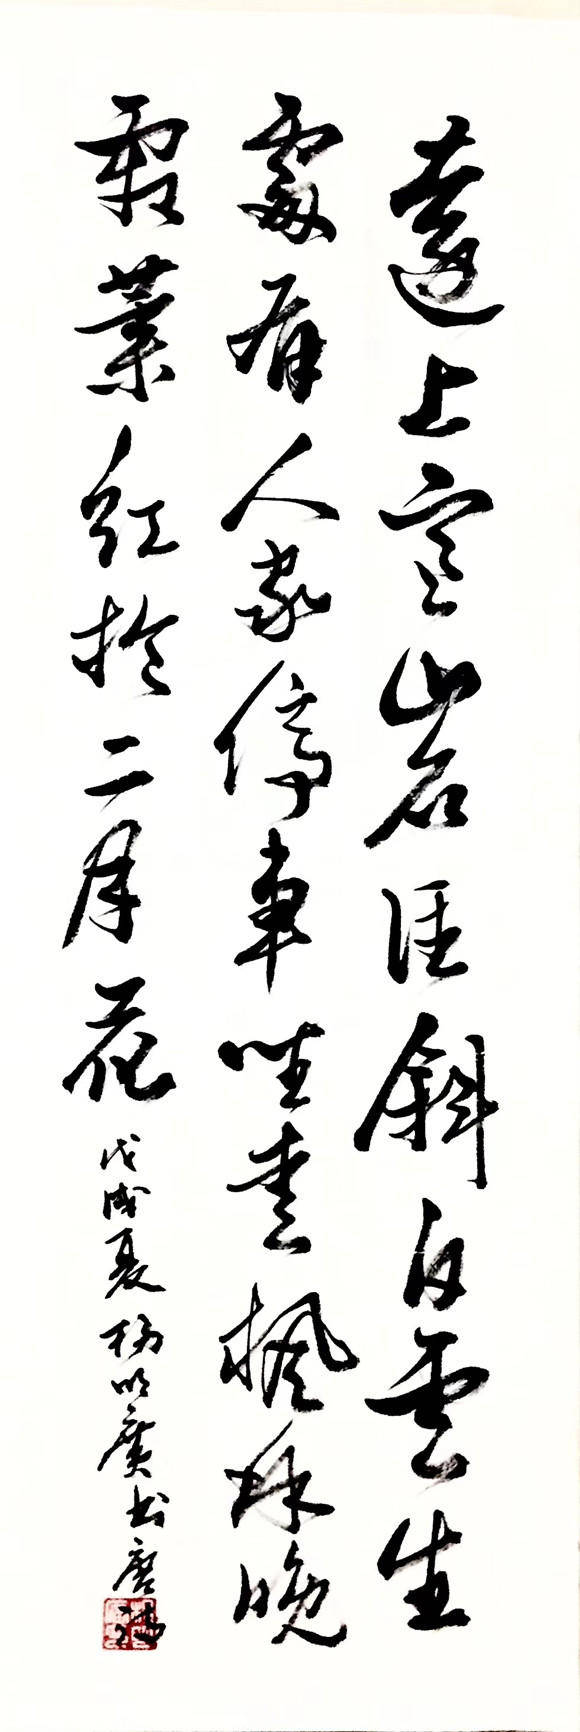 遠上寒山石徑斜白雲生
處有人家停車坐愛楓林晚
霜葉紅於二月花
戊戌夏杨明廣书唐诗